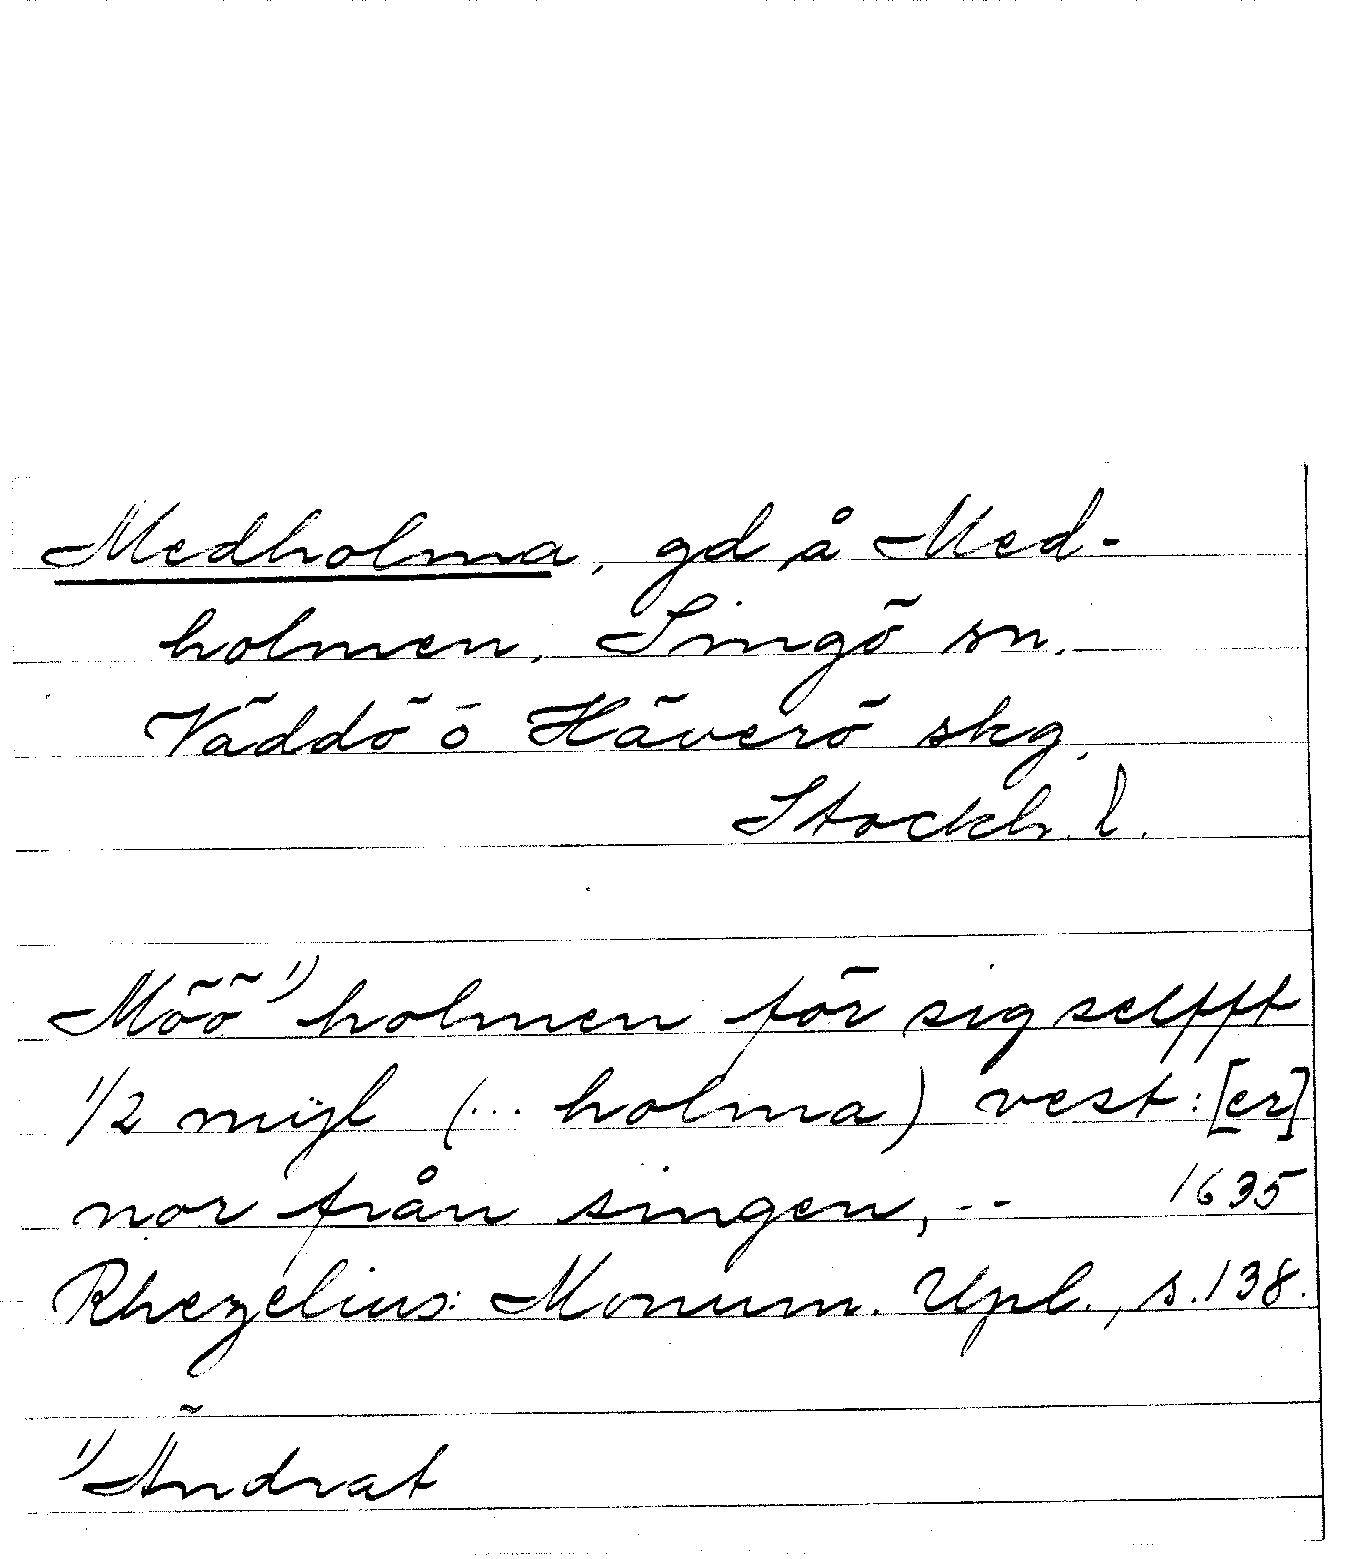 Medholma, gd å Med-
holmen, Singö sn.
Väddö o Häverö skg.
Stockh. l.
Möö¹⁾ holmen för sig selfft
1/2 mijl (... holma) vest:[er]
nor från singen, -- 1635
Rhezelius: Monum. Upl., s.138.
¹⁾Ändrat